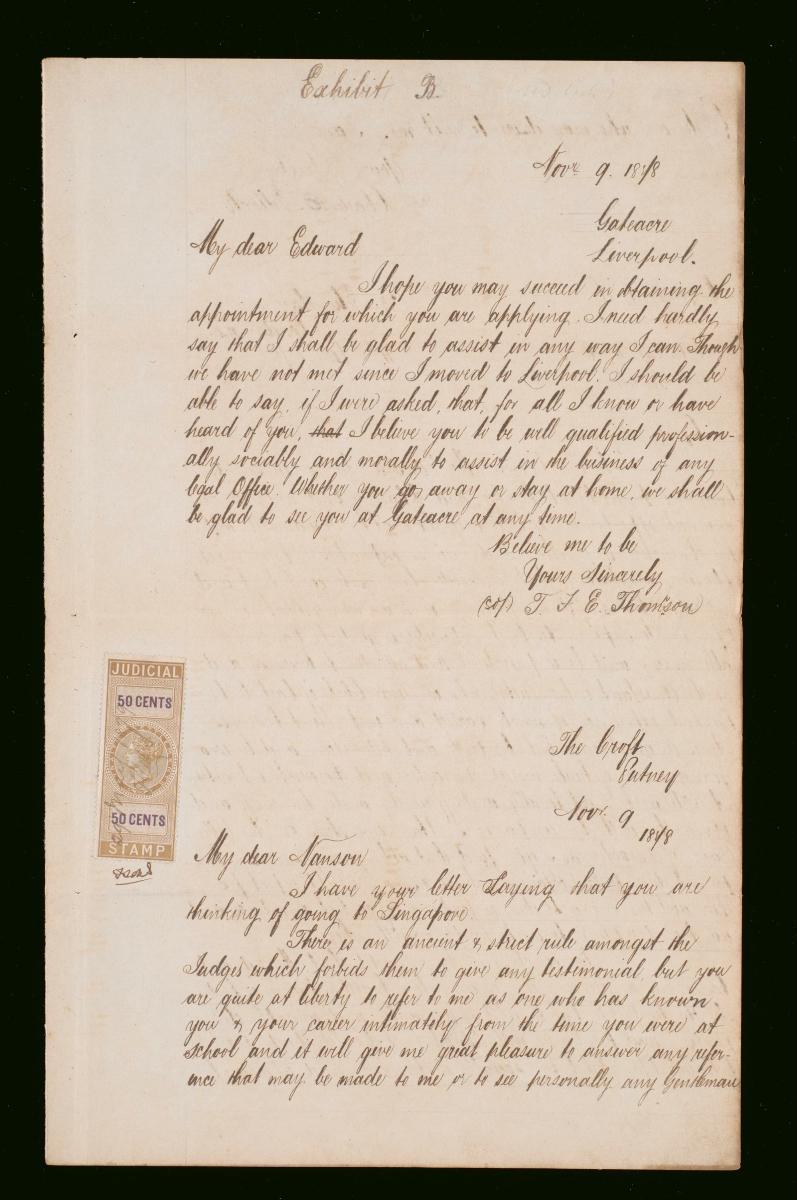 Exhibit B.
Novr 9. 1878
Gateacre
Liverpool.
My dear Edward
I hope you may succeed in obtaining the
appointment for which you are applying. I need hardly
say that I shall be glad to assist in any way I can. Though
we have not met since I moved to Liverpool. I should be
able to say, if I were asked, that, for all I know or have
heard of you, that I believe you to be well qualified profession-
ally sociably and morally to assist in the business of any
legal Office. Whether you go away or stay at home, we shall
be glad to see you at Gateacre at any time.
Believe me to be
Yours Sincerely
T. F. E. Thomson
JUDICIAL
50 CENTS
50 CENTS
STAMP
The Croft
Putney
Novr 9
1878
My dear Nanson
I have your letter Saying that you are
thinking of going to Singapore.
There is an ancient & strict rule amongst the
Judges which forbids them to give any testimonial but you
are quite at liberty to refer to me as one who has known
you & your career intimately from the time you were at
school and it will give me great pleasure to answer any refer-
ence that may be made to me or to see personally any Gentleman